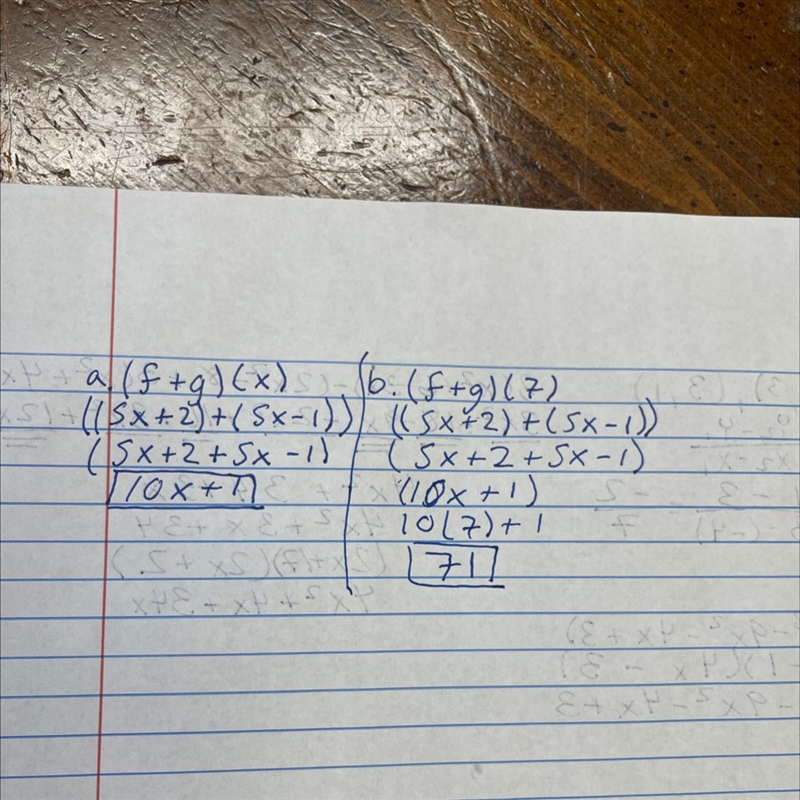 a. (f+g)(x)
((5x+2)+(5x-1))
(5x+2+5x-1)
10x+1
b. (f+g)(7)
((5x+2)+(5x-1))
(5x+2+5x-1)
(10x+1)
10(7)+1
71